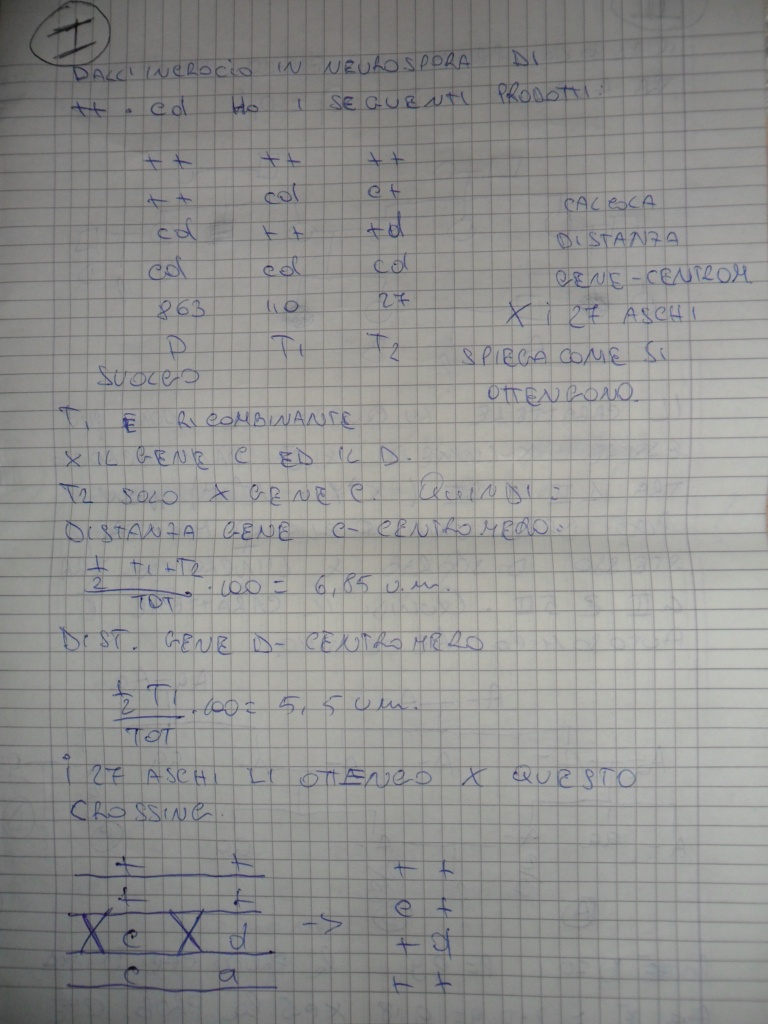 I
DALL'INCROCIO IN NEUROSPORA DI
++ · cd HO I SEGUENTI PRODOTTI:
++ ++ ++
++ cd c+
cd ++ +d
cd cd cd
863 110 27
P T1 T2
CALCOLA
DISTANZA
GENE-CENTROM
X i 27 ASCHI
SPIEGA COME SI
OTTENGONO
SVOLGO
T1 E RICOMBINANTE
X IL GENE C ED IL D.
T2 SOLO X GENE C. QUINDI:
DISTANZA GENE C- CENTROMERO:
1/2 T1+T2
TOT · 100 = 6,85 u.m.
DIST. GENE D- CENTROMERO
1/2 T1
TOT · 100 = 5,5 u.m.
i 27 ASCHI LI OTTENGO X QUESTO
CROSSING.
+ + + +
+ + c +
c d -> + d
c d + +